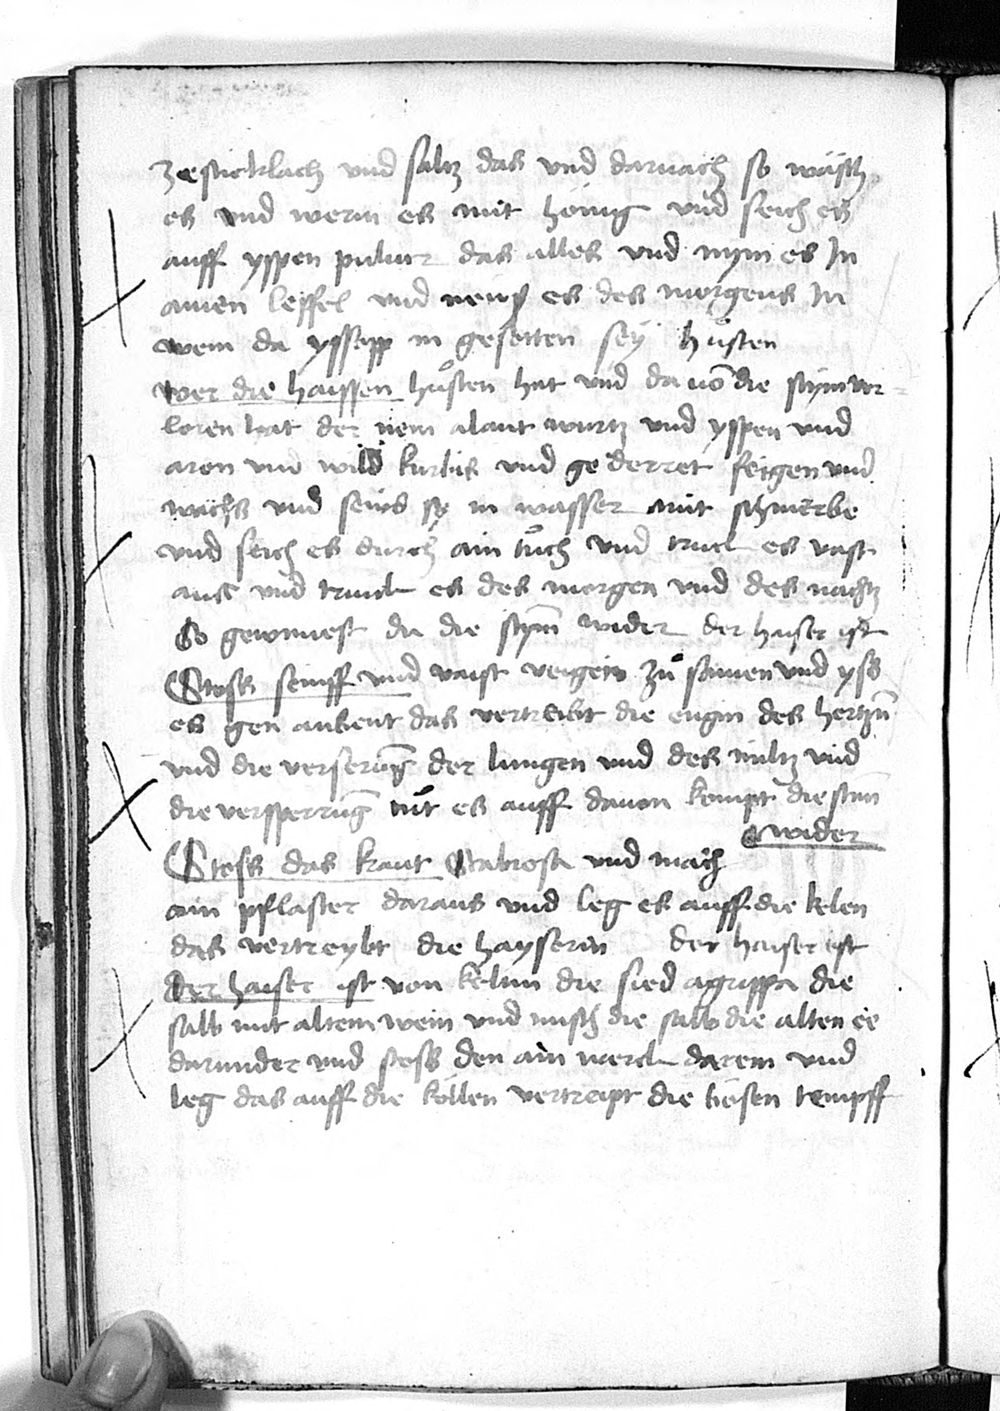 zesticklach und saltz das und darnach so wäsch
es und werm es mit honig und seich es
auff yspen puluer das alles und nym es In
ainen leffel und neuß es des morgens In
wein da yssopp in gesotten sey hůsten
wer die haissen hůsten hat und da uō die stym ver-
loren hat der nem alant wurtz und yspen und
aron und wild kurbis und gederret feigen und
wachs und seud sy in wasser mit schmerbe
und seich es durch ain tuch und truck es vast
auß und trinck es des morgen und des nachtz
So gewinnest du die stym wider der haiser ist
Stoss seniff und vaist veigen zů samen und yss
es gen aubent das vertreibt die engin des hertzn̄
und die verserung der lungen und des miltz und
die versperrung tůt es auff dauon kompt die stim
wider
Stoss das kraut Stabrosa und mach
ain pflaster daraus und leg es auff die kelen
das vertreybt die hayserin der haiser ist
der haiser ist von keltin die sied agrippa die
salb mit altem wein und misch die salb die alten ee
darunder und stoss den ain werck darein und
leg das auff die kellen vertreipt die bösen tempff